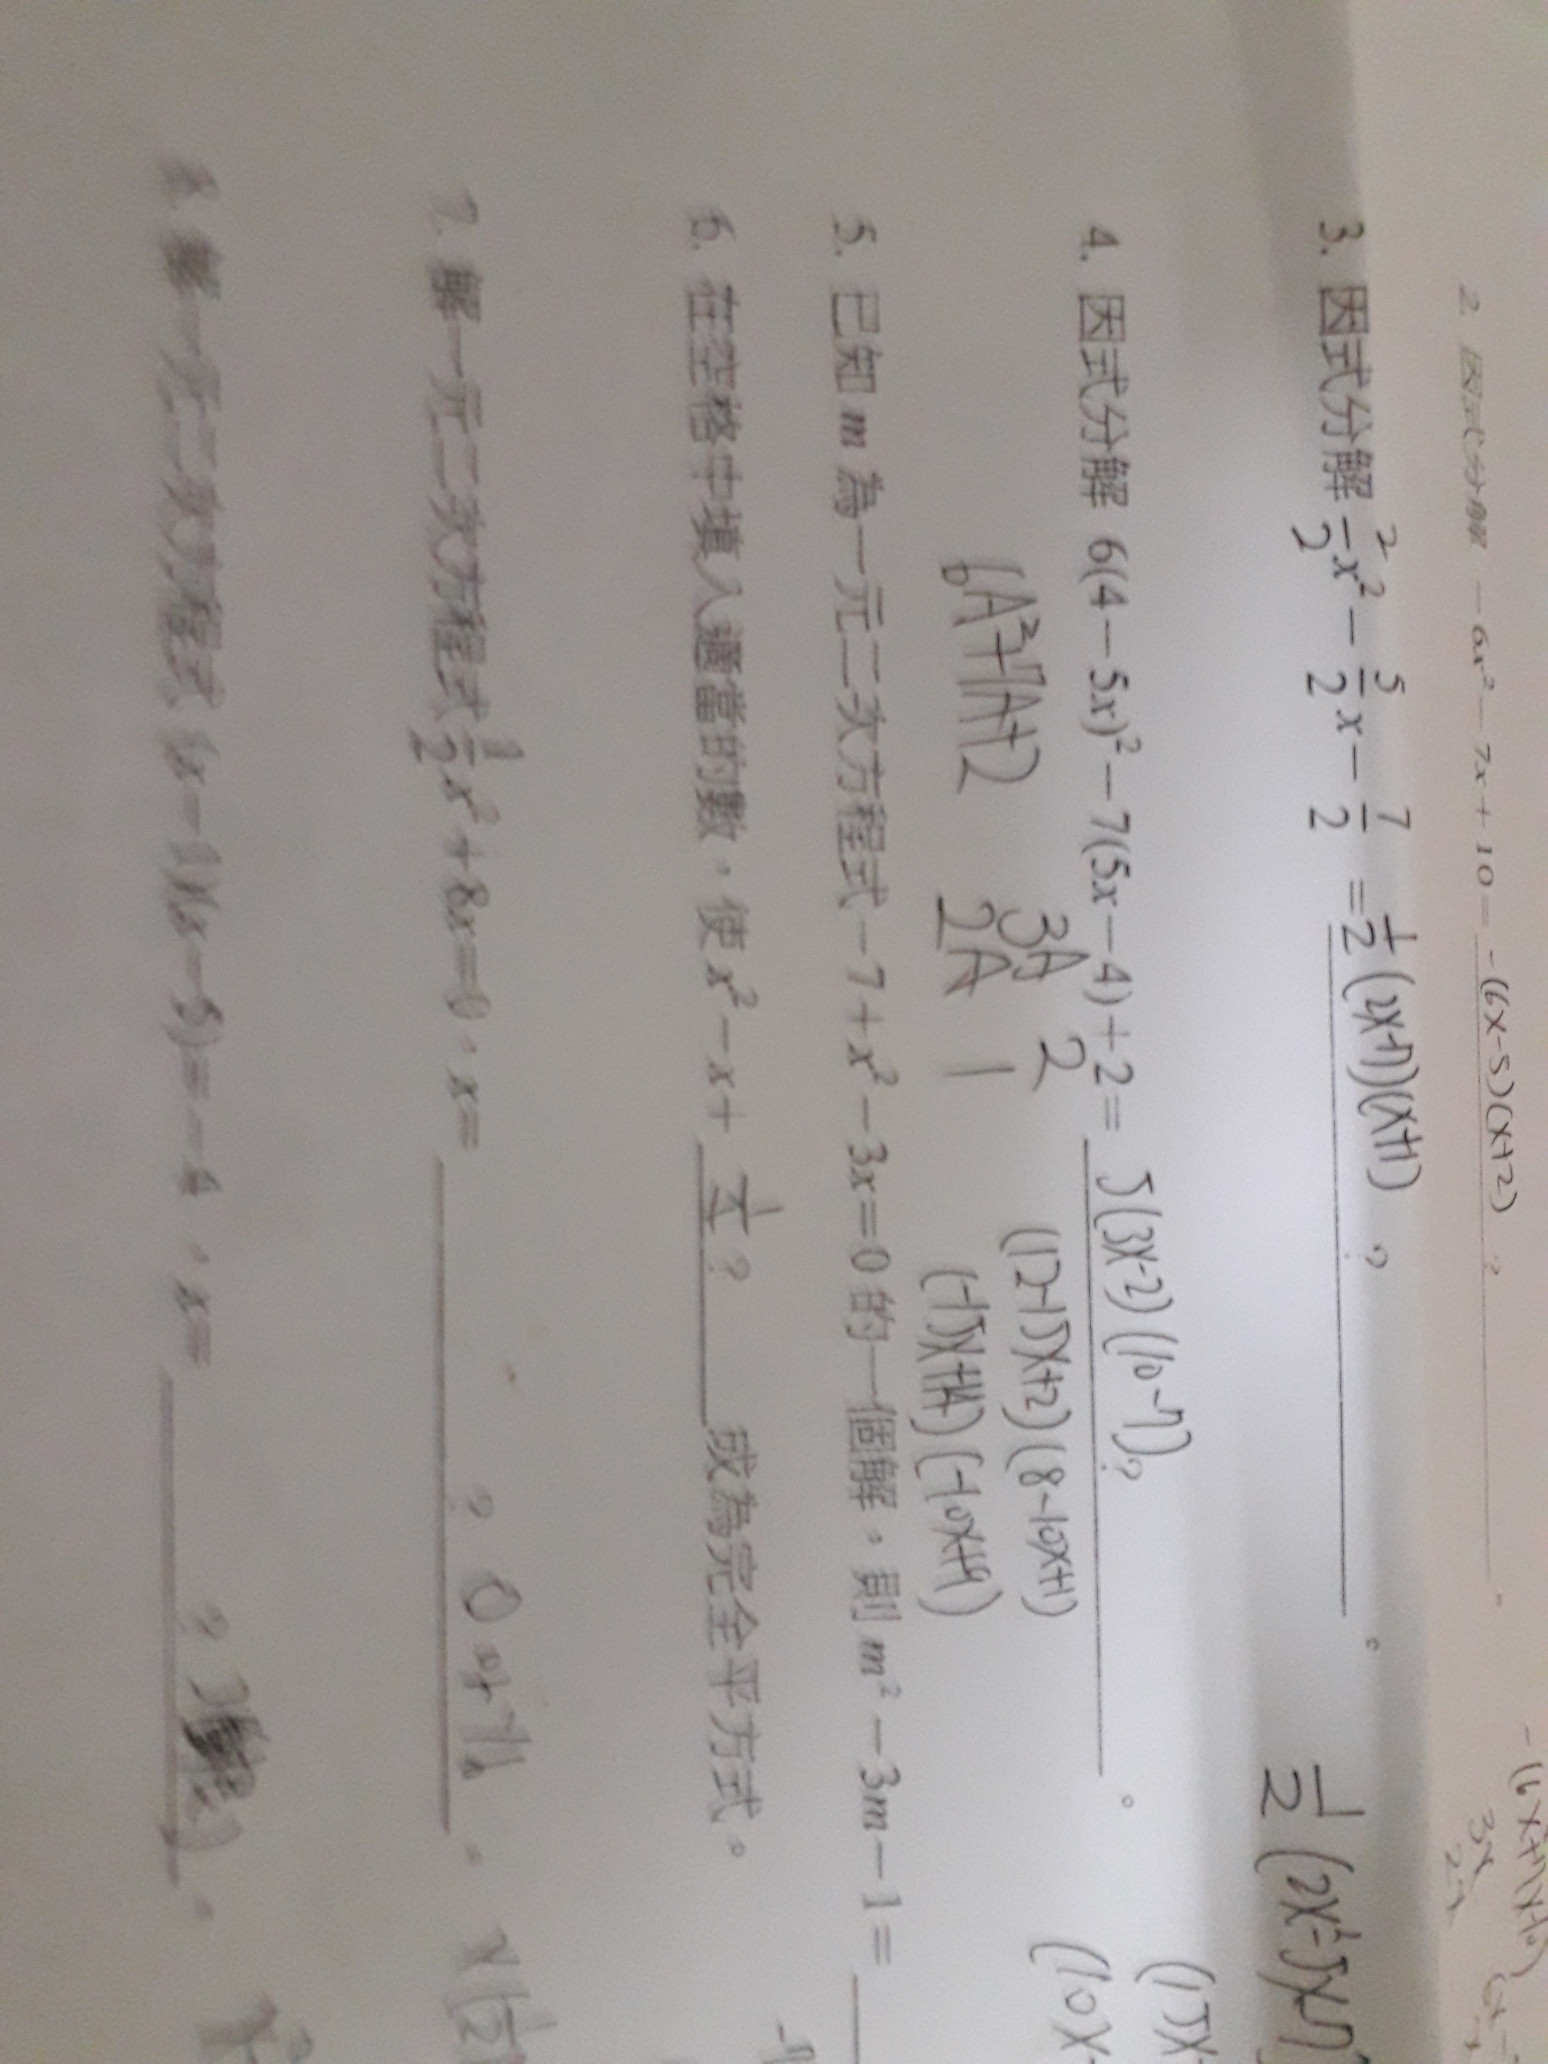 2. 因式分解 -6x²-7x+10= -(6x-5)(x+2) ?
3. 因式分解 2/2 x² - 5/2 x - 7/2 = 1/2 (2x-7)(x+1) ? 。
1/2 (2x²-5x-7
4. 因式分解 6(4-5x)²-7(5x-4)+2= 5(3x-2)(10-7) ? 。
6A²+7A+2 3A 2 (12-15x+2)(8-10x+1)
2A 1 (-15x+14)(-10x+9)
(15x
(10x-
5. 已知 m 為一元二次方程式 -7+x²-3x=0 的一個解，則 m²-3m-1=
6. 在空格中填入適當的數，使 x²-x+ 1/4 ? 成為完全平方式。
7. 解一元二次方程式 1/2 x²+8x=0，x= ? 0 or 。
8. 解一元二次方程式 (x-1)(x-5)=-4，x= ? 。